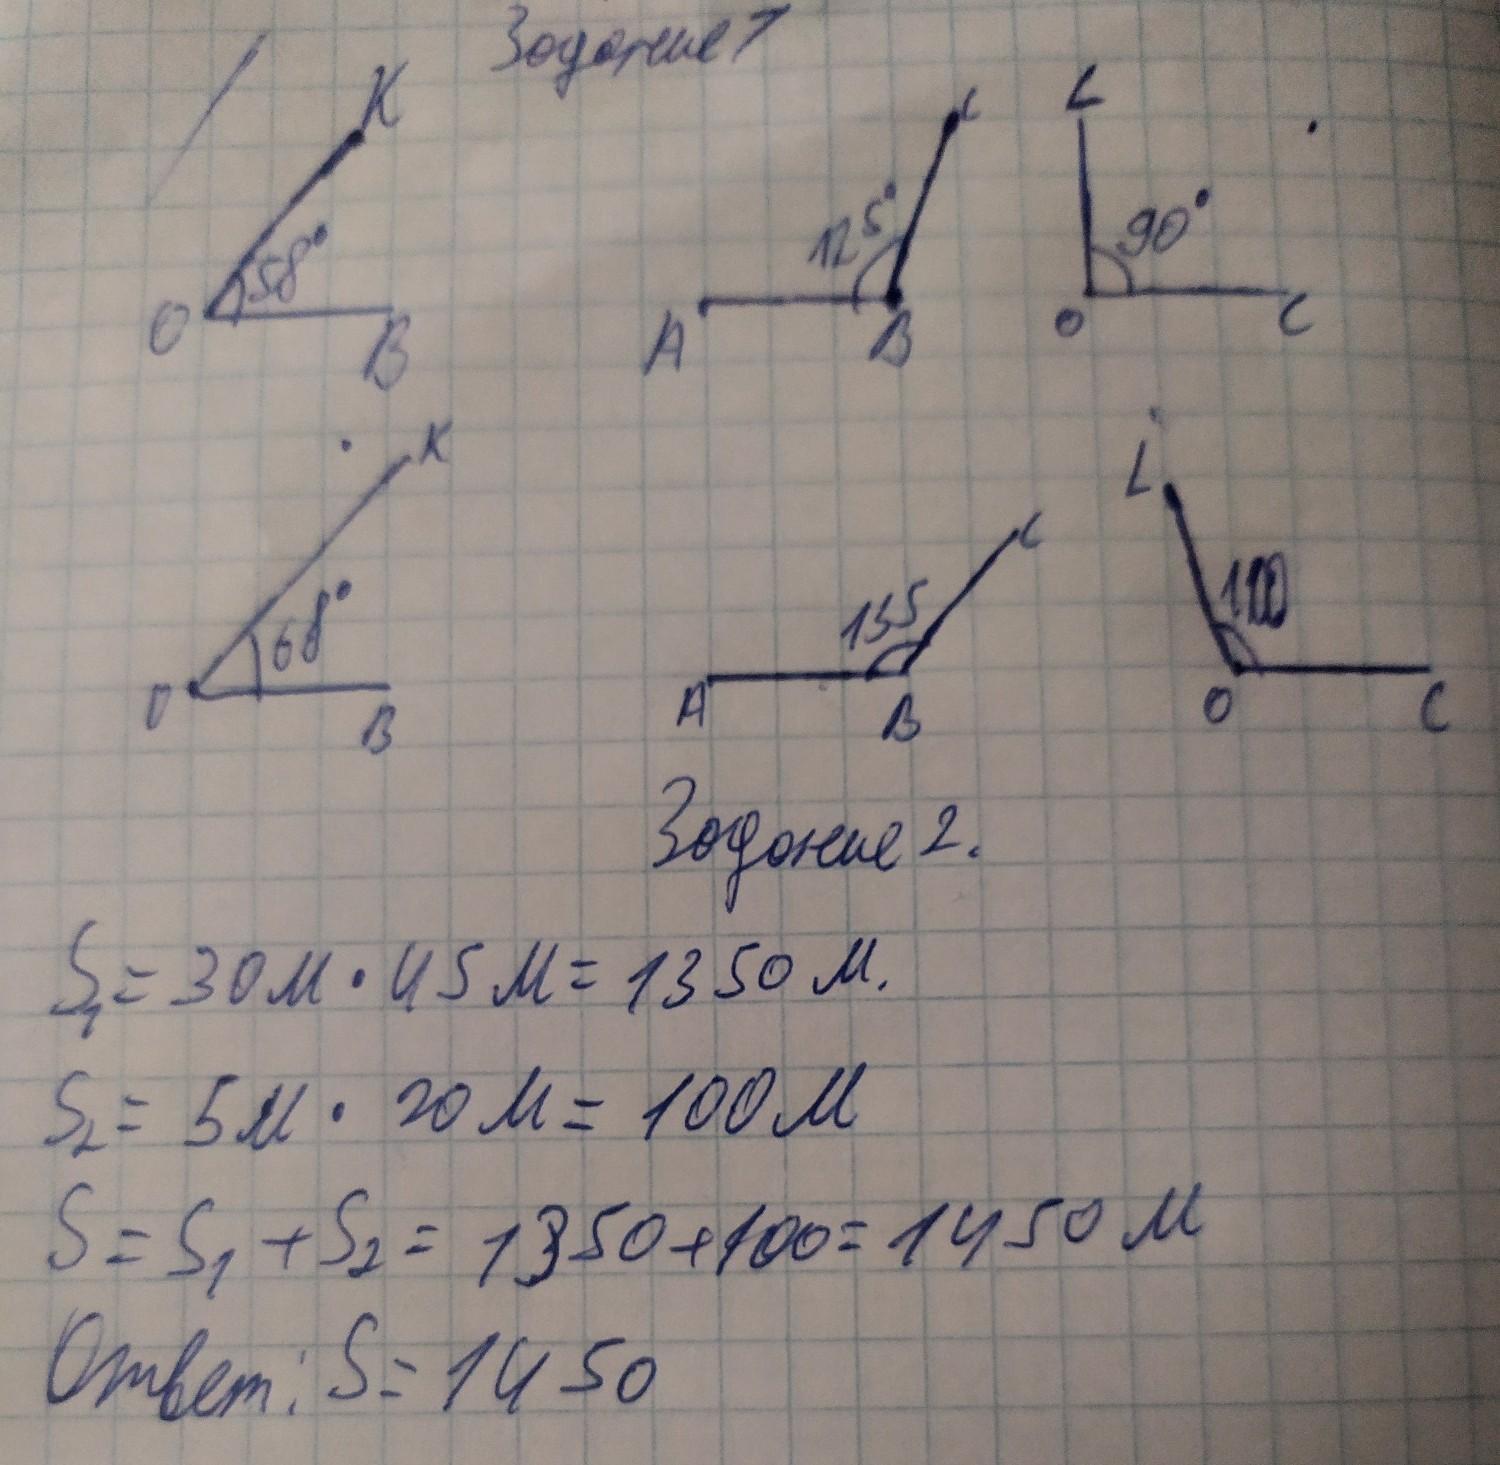 Задание 1
K
58°
O
B
C
125°
A
B
L
90°
O
C
K
68°
O
B
C
135
A
B
L
O
C
Задание 2.
S₁ = 30 м · 45 м = 1350 м.
S₂ = 5 м · 20 м = 100 м
S = S₁ + S₂ = 1350 + 100 = 1450 м
Ответ: S = 1450